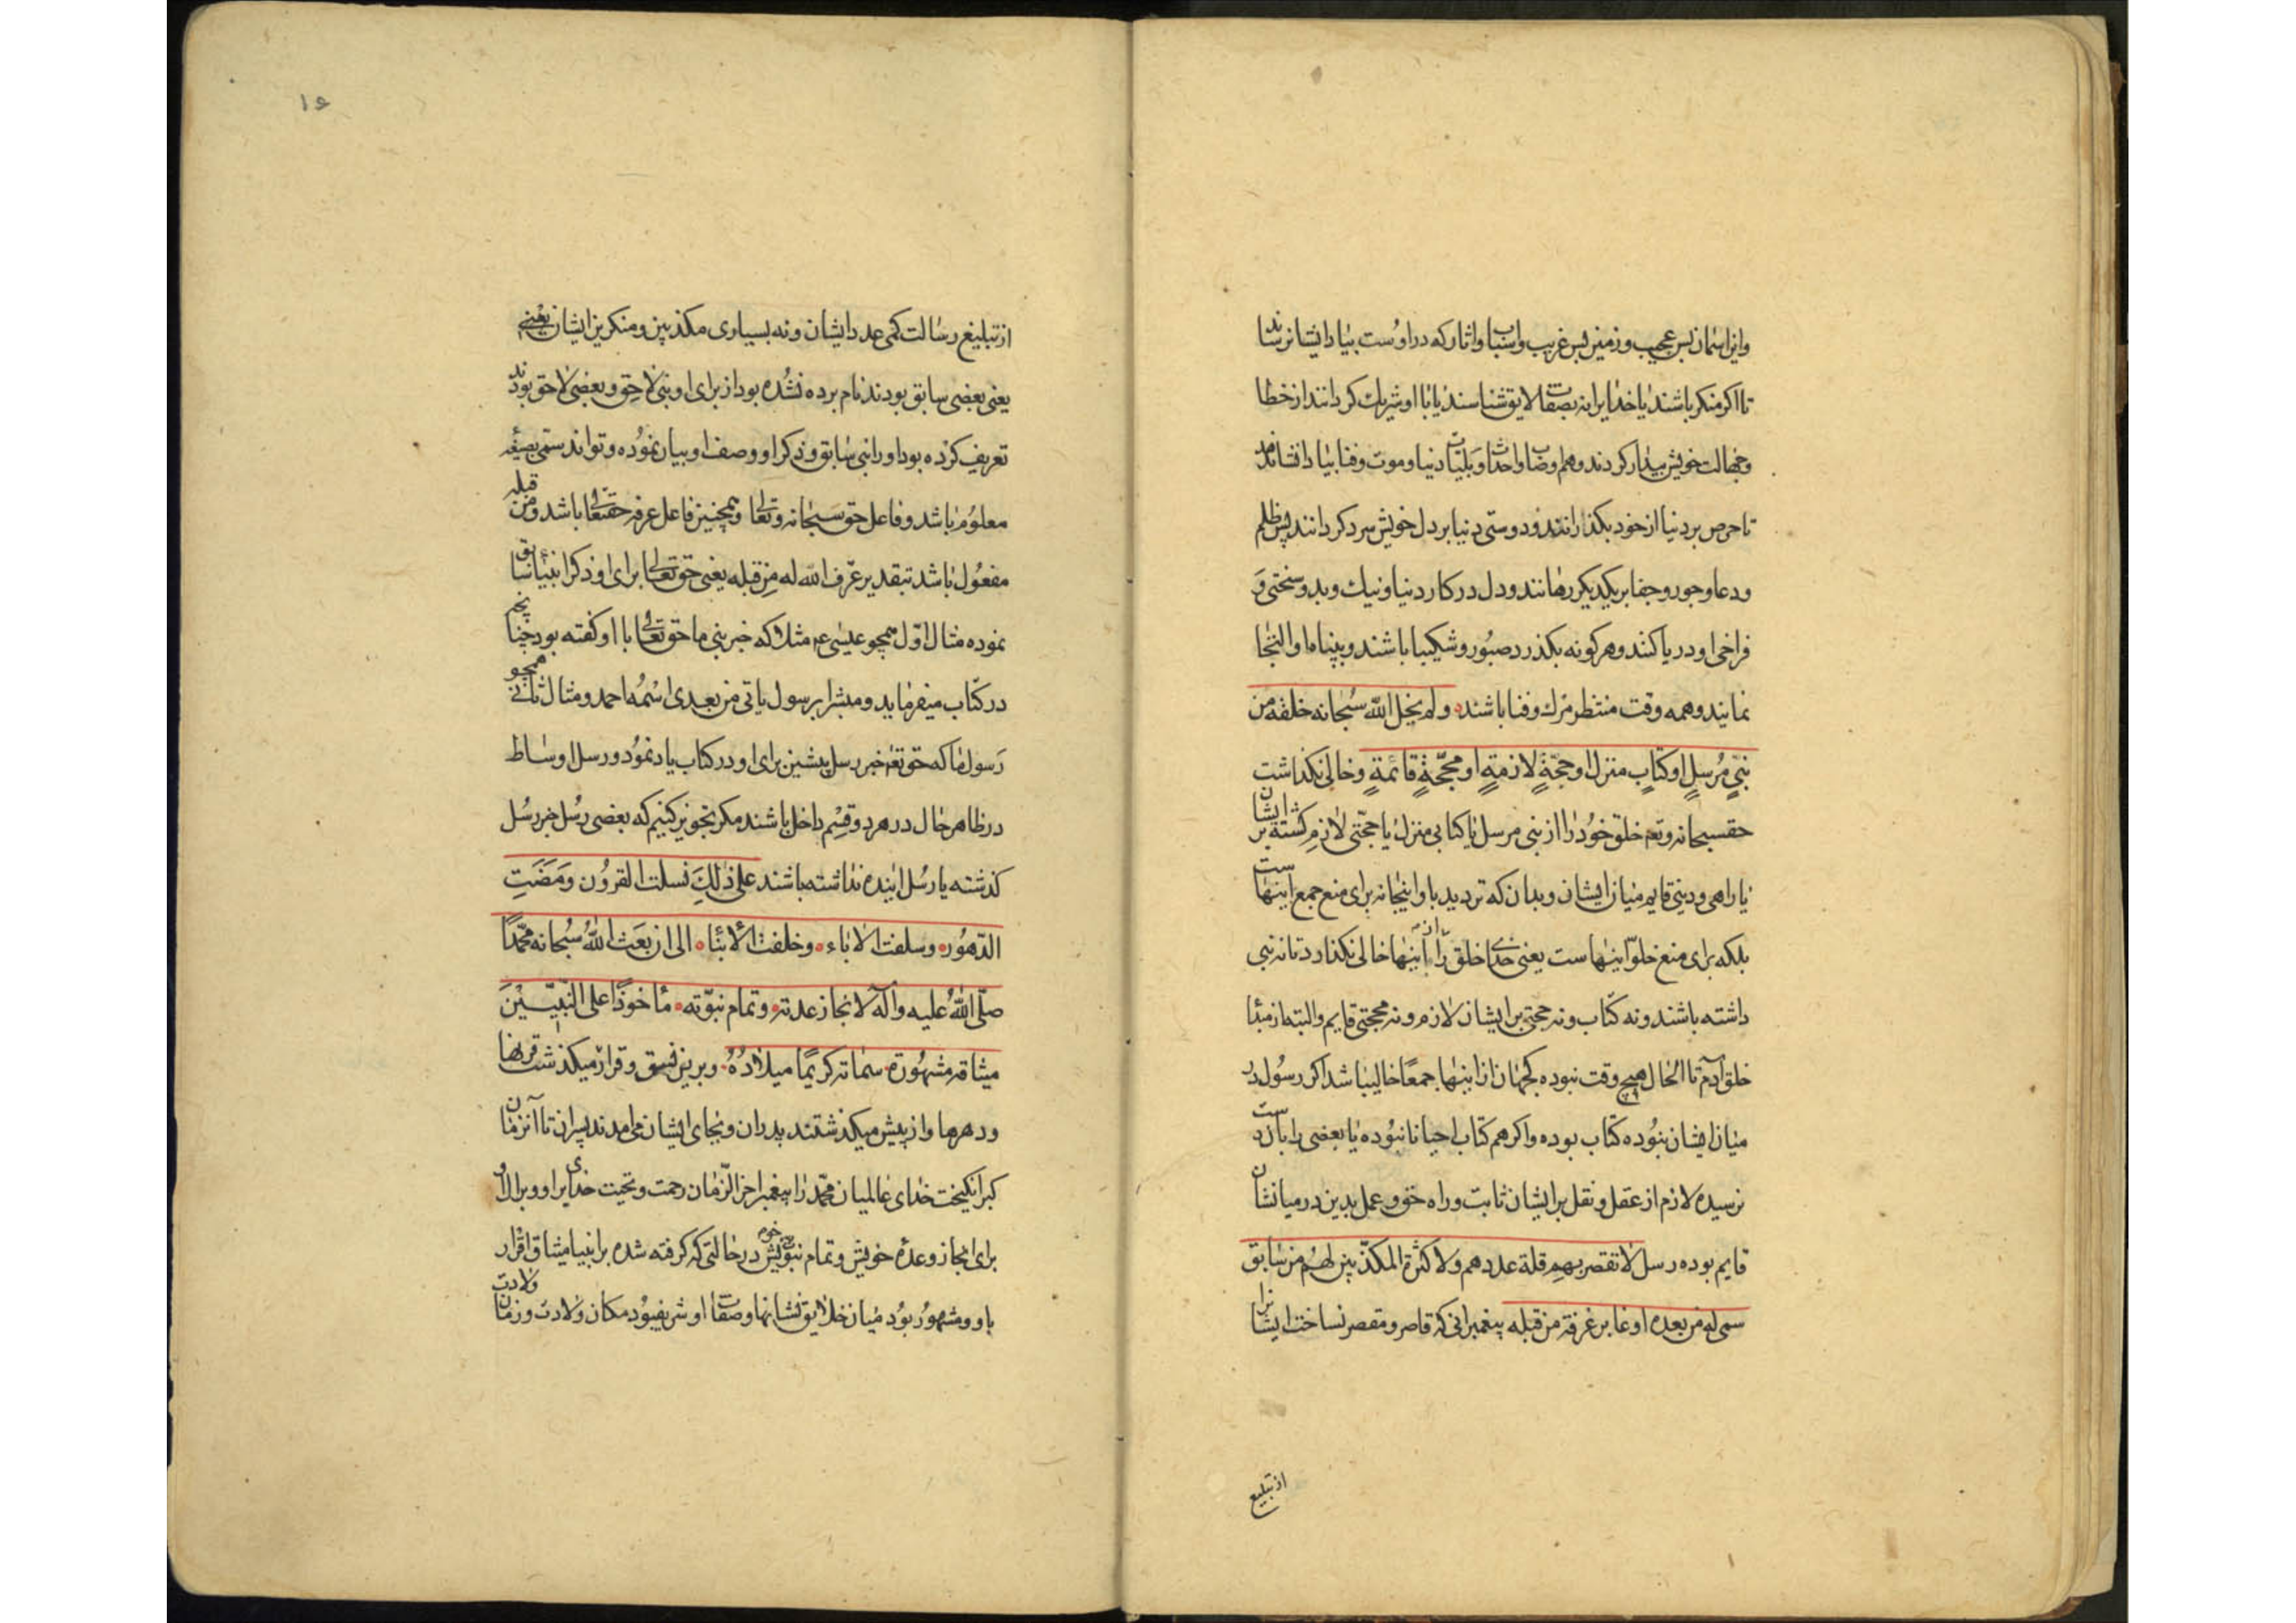 واین اسمان بس عجیب وزمین بس غریب واسباب واثار که در اوست بیاد ایشان رسانند
تا اکر منکر باشند یا خدایرا نه بصفات لایق شناسند یا با او شریك کردانند از خطا
وجهالت خویش بیدار کردند وهم وصاب واحداث وبلیات دنیا وموت وفنا بیاد
تا حرص بر دنیا از خود بکذارانند ودوستی دنیا بر دل خویش سرد کردانند پس ظلم
ودعا وجور وجفا بر یکدیکر رها نند ودل در کار دنیا ونیك وبد وسختی و
فراخی او در یا کنند وهر کونه بکذرد صبور وشکیبا باشند وبپناه او التجا
نمایند وهمه وقت منتظر مرك وفنا باشند ولم یخل الله سبحانه خلقه من
نبیٍ مُرسلٍ او کتابٍ منزل او حجّةٍ لازمةٍ او محجّةٍ قائمةٍ وخالی نکذاشت
حقسبحانه وتعه خلق خود را از نبی مرسل یا کتابی منزل یا حجّتی لازم کشته بر ایشان
یا راهی ودینی قایم میان ایشان وبدان که تردید باو اینجا نه برای منع جمع اینهاست
بلکه برای منع خلوّ اینهاست یعنی خدای خلق را از اینها خالی نکذارد تا نه نبی
داشته باشند ونه کتاب ونه حجتی بر ایشان لازم ونه محجتی قایم والبته از مبدا
خلق آدم تا الحال هیچ وقت نبوده که جهان از اینها جمعًا خالی باشد اکر رسول در
میان ایشان نبوده کتاب بوده واکر هم کتاب احیانا نبوده یا بعضی را بان دست
نرسیده لازم از عقل ونقل بر ایشان ثابت وراه حق وعمل بدین در میانشان
قایم بوده رسل لا تقصر بهم قلة عددهم ولا کثرة المکذّبین لهم من سابق
سمی له من بعده او غابر عرفه من قبله پیغمبرانی که قاصر ومقصر نساخت ایشانرا
از تبلیغ
۱۶
از تبلیغ رسالت کمی عدد ایشان ونه بسیاری مکذبین ومنکرین ایشان یعنی
یعنی بعضی سابق بودند نام برده نشده بود از برای او نبی لاحق وبعضی لاحق بودند
تعریف کرده بود او را نبی سابق وذکر او ووصف او بیان نموده وتواند سمّی بصیغه
معلوم باشد وفاعل حق سبحانه وتعالی وهمچنین فاعل عرفه حقتعالی باشد ومن قبله
مفعول باشد بتقدیر عرّف الله له من قبله یعنی حق تعالی برای او ذکر انبیاء سابق
نموده مثال اوّل همچو عیسی ع مثلا که خبر نبی ما حق تعالی با او کفته بود چنانچه
در کتاب میفرماید ومبشرا برسول یاتی من بعدی اسمه احمد ومثال ثانی همچو
رسول ما که حق تعه خبر رسل پیشین برای او در کتاب یاد نمود ورسل اوساط
در ظاهر حال در هر دو قسم داخل باشند مکر تجویز کنیم که بعضی رسل خبر رسل
کذشته یا رسل اینده نداشته باشند علی ذلك نسلت القرون ومَضَتِ
الدّهور وسلفت الاباء وخلفت الابناء الی ان بعث الله سُبحانه محمّدًا
صلّی الله علیه وآله لانجاز عدته وتمام نبوّته ماخوذًا علی النّبیّینَ
میثاقه مشهورة سماته کریمًا میلادُهُ وبرین نسق وقرار میکذشت قرنها
ودهرها واز پیش میکذشتند پدران وبجای ایشان می امدند پسران تا آنزمان
که برانکیخت خدای عالمیان محمّد را پیغمبر اخر الزّمان رحمت وتحیت خدای بر او وبر آل او
برای انجاز وعدهٔ خویش وتمام نبوت خویش در حالتی که کرفته شده بر انبیا میثاق اقرار
باو ومشهور بود میان خلایق نشانها وصفات او شریف بود مکان ولادت وزمان ولادت